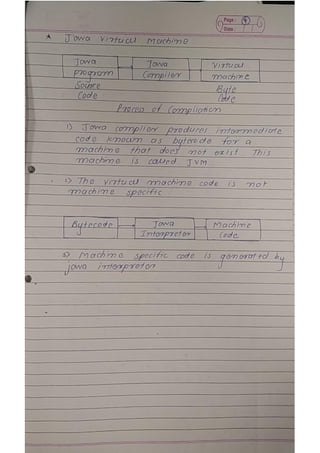 Page: 9
Date: / /
★ Java Virtual Machine
Java program → Java Compiler → Virtual machine
Source Code Byte Code
Process of Compilation
1) Java compiler produces intermediate
code known as bytecode for a
machine that does not exist This
machine is called Jvm
2) The virtual machine code is not
machine specific
Bytecode → Java Interpretor → Machine Code
3) Machine specific code is generated by
java interpretor